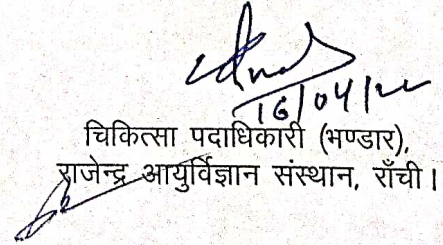 16/04/22
चिकित्सा पदाधिकारी (भण्डार),
राजेन्द्र आयुर्विज्ञान संस्थान, राँची।